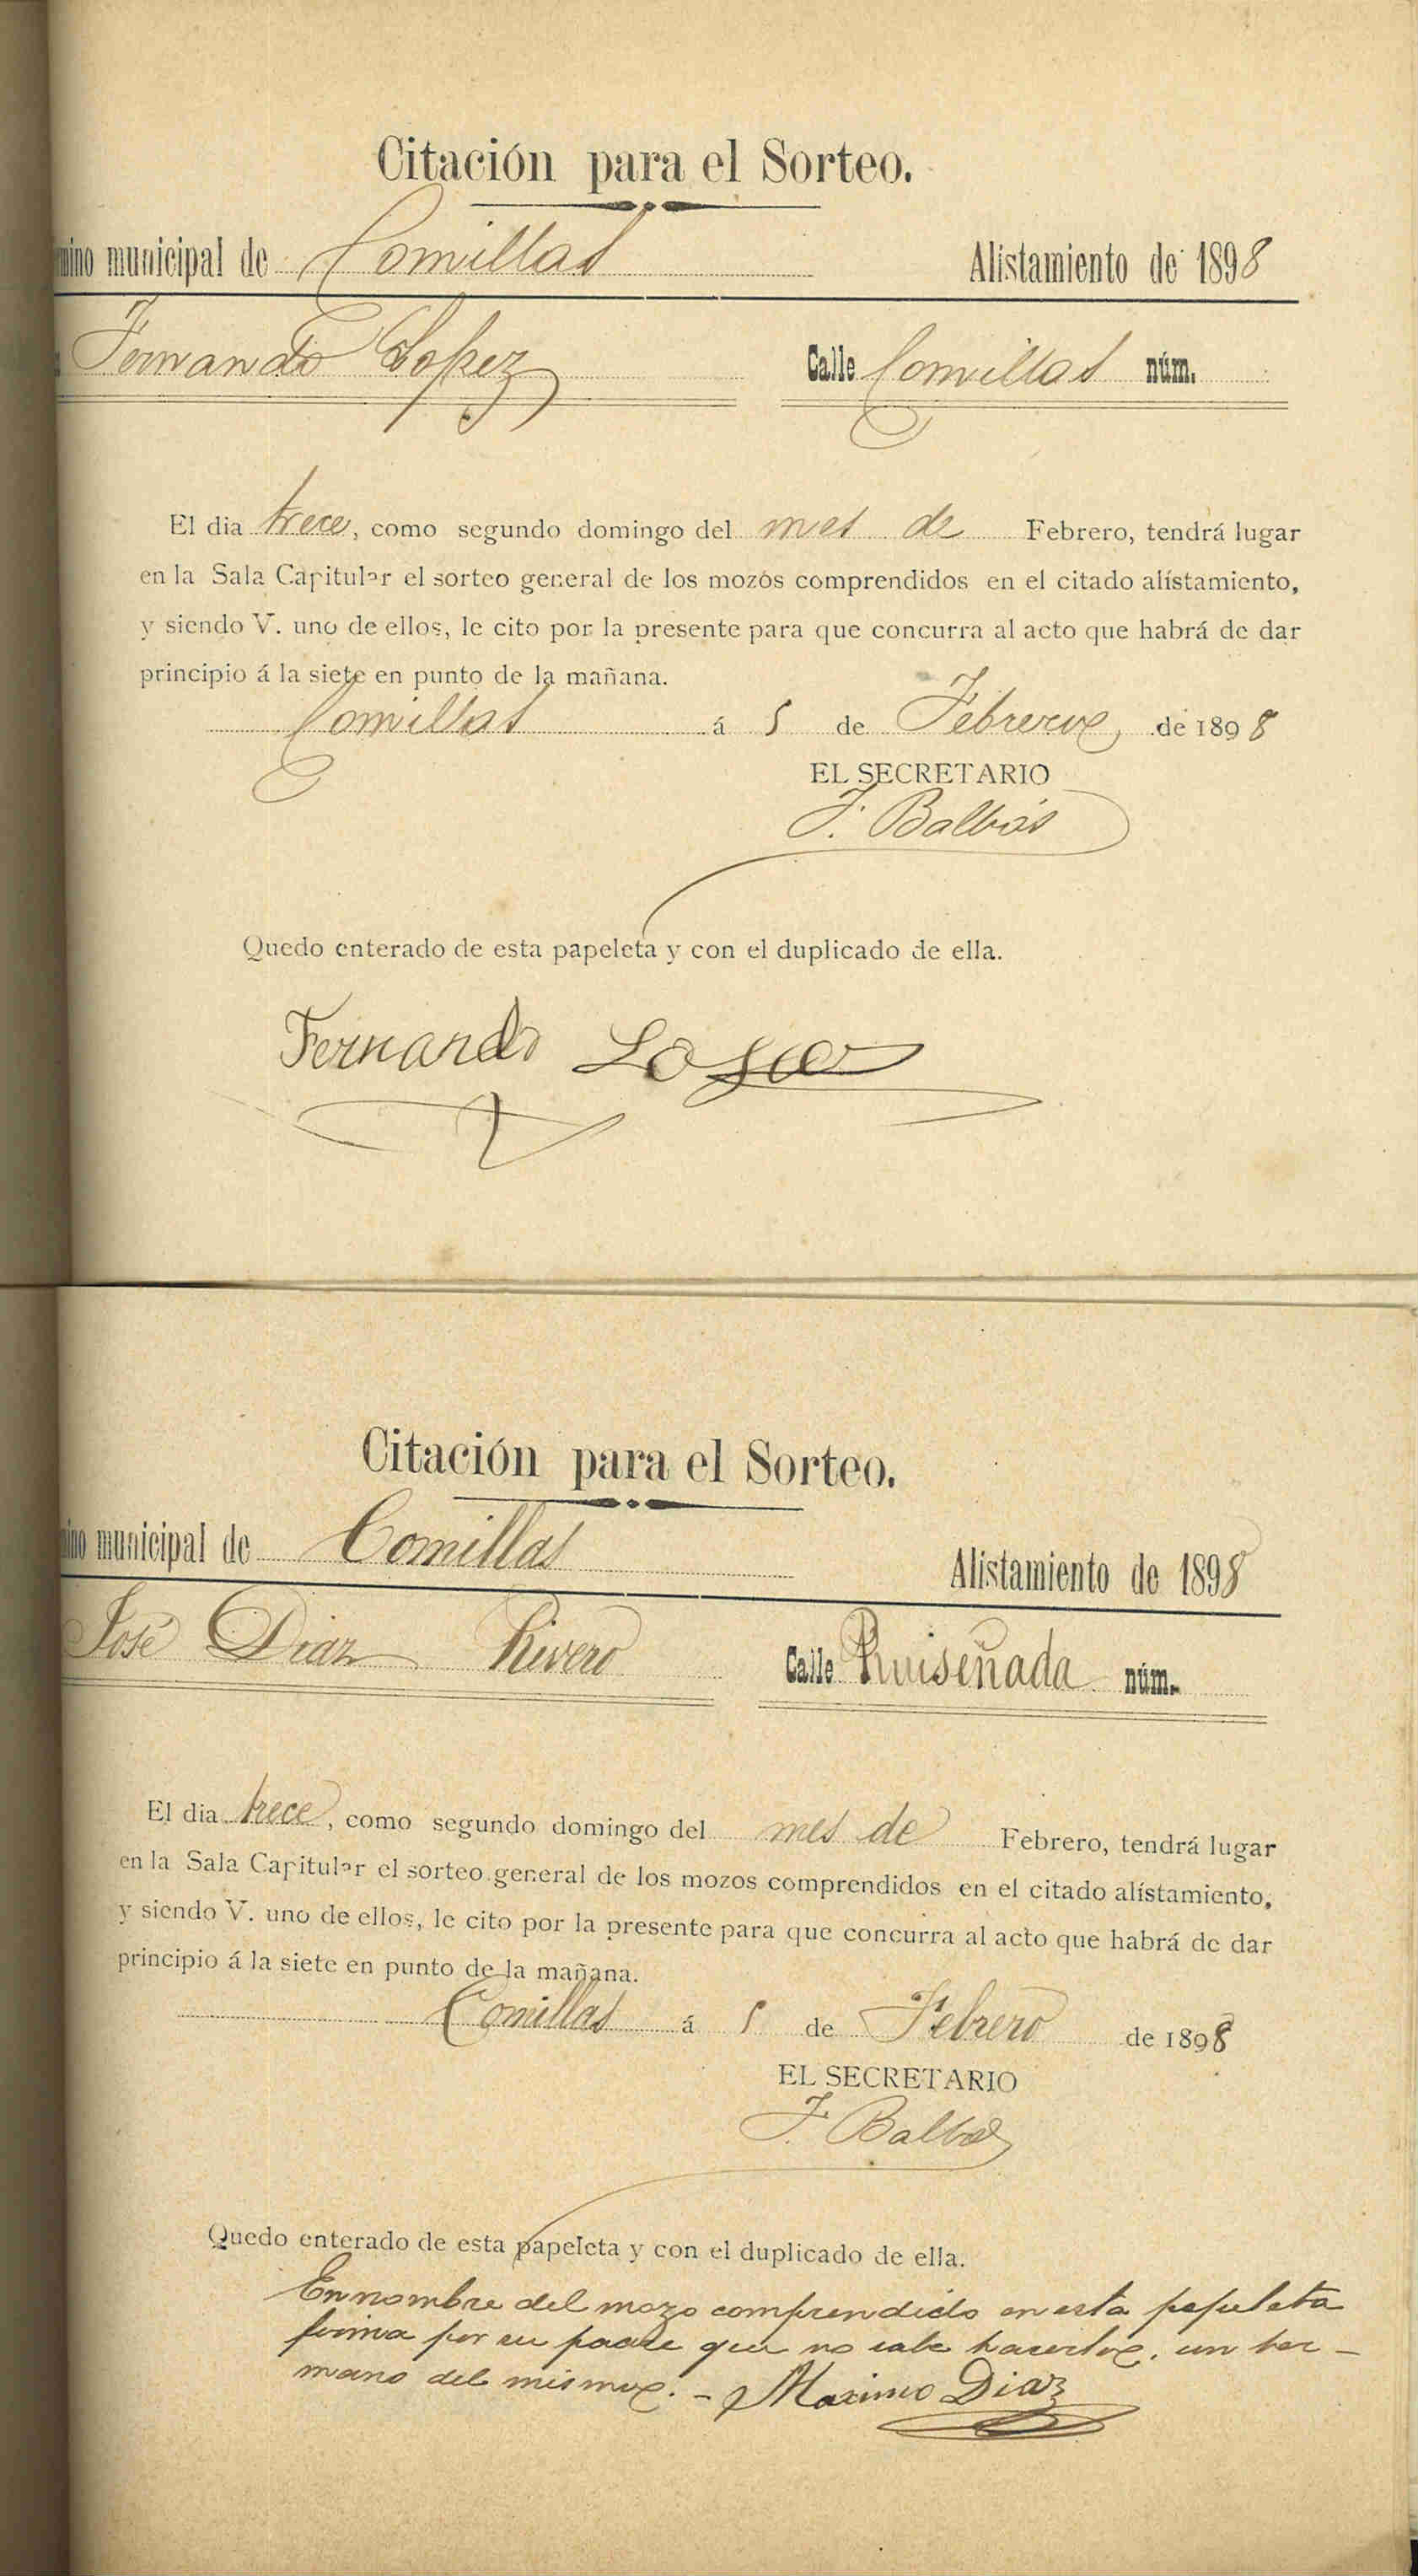 Citación para el Sorteo.
mino municipal de Comillas Alistamiento de 1898
Fernando Lopez Calle Comillas núm.
El dia trece, como segundo domingo del mes de Febrero, tendrá lugar
en la Sala Capitular el sorteo general de los mozos comprendidos en el citado alistamiento,
y siendo V. uno de ellos, le cito por la presente para que concurra al acto que habrá de dar
principio á la siete en punto de la mañana.
Comillas á 5 de Febrero, de 1898
EL SECRETARIO
F. Balbás
Quedo enterado de esta papeleta y con el duplicado de ella.
Fernando Lopez
Citación para el Sorteo.
mino municipal de Comillas Alistamiento de 1898
José Diaz Rivero Calle Ruiseñada núm.
El dia trece, como segundo domingo del mes de Febrero, tendrá lugar
en la Sala Capitular el sorteo general de los mozos comprendidos en el citado alistamiento,
y siendo V. uno de ellos, le cito por la presente para que concurra al acto que habrá de dar
principio á la siete en punto de la mañana.
Comillas á 5 de Febrero de 1898
EL SECRETARIO
F. Balbás
Quedo enterado de esta papeleta y con el duplicado de ella.
En nombre del mozo comprendido en esta papeleta
firma por su padre que no sabe hacerlo, un her-
mano del mismo. - Maximo Diaz